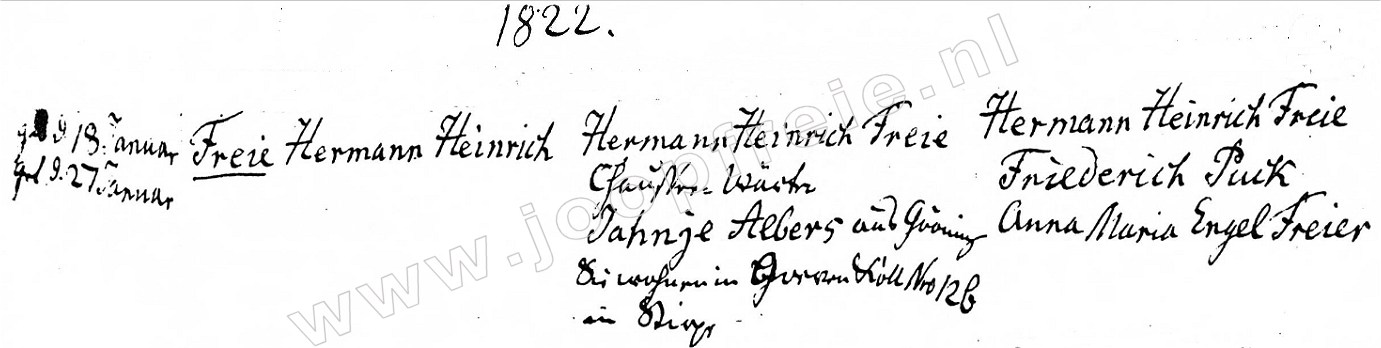 1822.
d. 18. Januar
Get d. 27 Januar
Freie Hermann Heinrich
Hermann Heinrich Freie
Chaussee-Wärter
Jahnje Albers aus
Sie wohnen in Nro 12b
in
Hermann Heinrich Freie
Friederich Puck
Anna Maria Engel Freier
www.joopfreie.nl